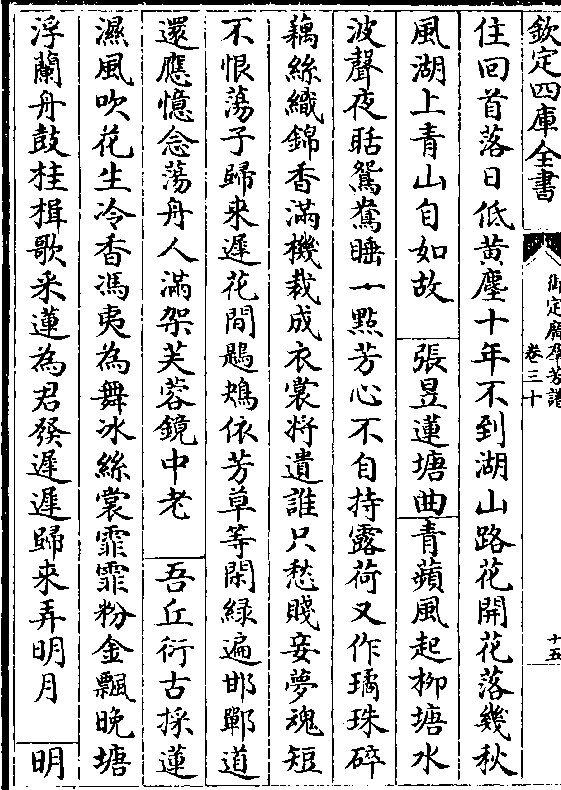 欽定四庫全書
御定廣羣芳譜
卷三十
十五
住回首落日低黄塵十年不到湖山路花開花落幾秋
風湖上青山自如故 張昱蓮塘曲 青蘋風起柳塘水
波聲夜聒鴛鴦睡一點芳心不自持露荷又作璚珠碎
藕絲織錦香滿機裁成衣裳将遺誰只愁賤妾夢魂短
不恨蕩子歸来遲花間鷓鴣依芳草等閑緑遍邯鄲道
還應憶念蕩舟人滿架芙蓉鏡中老 吾丘衍古採蓮
濕風吹花生冷香馮夷為舞冰絲裳霏霏粉金飄晚塘
浮蘭舟鼓桂楫歌采蓮為君發遲遲歸来弄明月 明